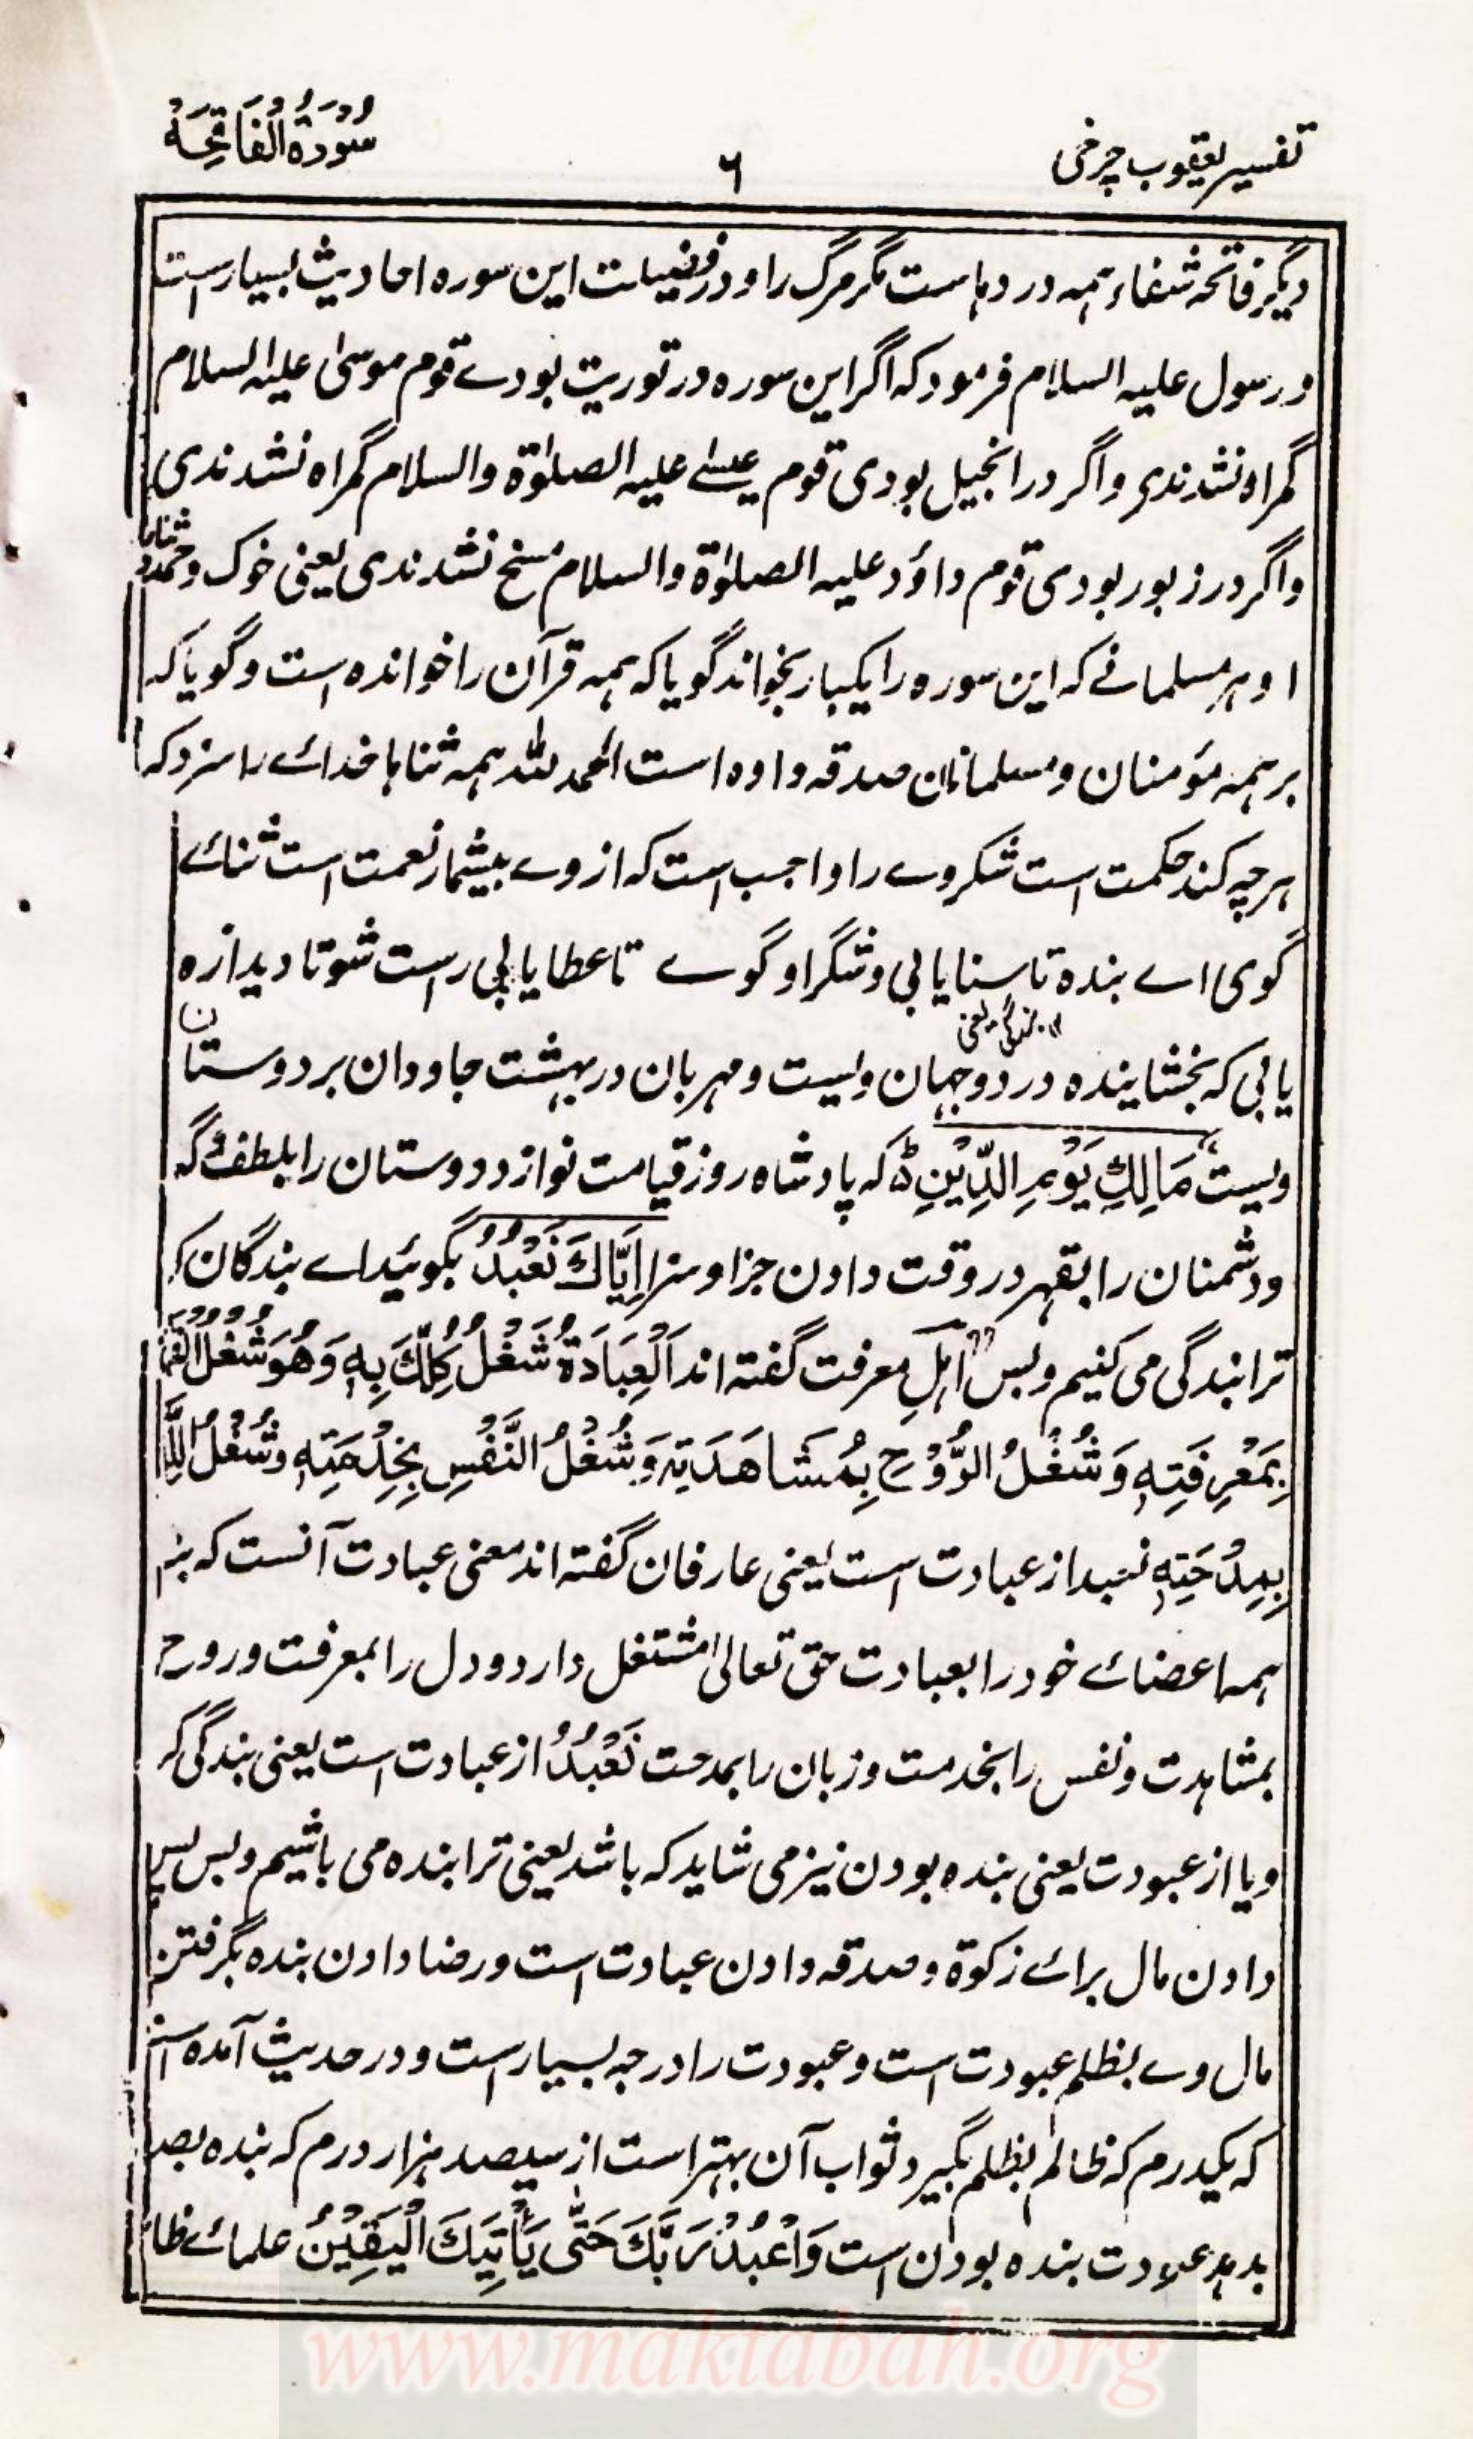 تفسیر یعقوب چرخی
۶
سُوْرَةُ الْفَاتِحَة
دیگر فاتحہ شفاء ہمہ دردہاست مگر مرگ را و در فضیلت این سورہ احادیث بسیار است
و رسول علیہ السلام فرمود کہ اگر این سورہ در توریت بودے قوم موسیٰ علیہ السلام
گمراہ نشدندی و اگر در انجیل بودی قوم عیسےٰ علیہ الصلوٰۃ والسلام گمراہ نشدندی
و اگر در زبور بودی قوم داؤد علیہ الصلوٰۃ والسلام مسخ نشدندی یعنی خوک و
او ہر مسلمانے کہ این سورہ را یکبار بخواند گویا کہ ہمہ قرآن را خواندہ است و گویا کہ
بر ہمہ مؤمنان و مسلمانان صدقہ دادہ است الحمد للہ ہمہ ثناہا خدائے را سزد کہ
ہرچہ کند حکمت است شکر وے را واجب است کہ از وے بیشمار نعمت است ثنائے
گوی اے بندہ تا سنا یابی و شکر او گوے تا عطا یابی راست شو تا دیدار
یابی کہ بخشایندہ در دو جہان ویست و مہربان در بہشت جاودان بر دوستان
ویست مَالِكِ يَوْمِ الدِّيْنِ کہ پادشاہ روز قیامت نوازد دوستان را بلطف گہ
و دشمنان را بقہر در وقت دادن جزا و سزا اِيَّاكَ نَعْبُدُ بگوئید اے بندگان کہ
ترا بندگی می کنیم و بس اہلِ معرفت گفتہ اند اَلْعِبَادَةُ شُغْلُ كُلِّكَ بِهٖ وَهُوَ شُغْلُ
بِمَعْرِفَتِهٖ وَشُغْلُ الرُّوْحِ بِمُشَاهَدَتِهٖ وَشُغْلُ النَّفْسِ بِخِدْمَتِهٖ وَشُغْلُ
بِمِدْحَتِهٖ نعبد از عبادت است یعنی عارفان گفتہ اند معنی عبادت آنست کہ
ہمہ اعضائے خود را بعبادت حق تعالیٰ مشتغل دارد و دل را بمعرفت و روح
بمشاہدت و نفس را بخدمت و زبان را بمدحت نَعْبُدُ از عبادت است یعنی بندگی کہ
و یا از عبودت یعنی بندہ بودن نیز می شاید کہ باشد یعنی ترا بندہ می باشیم و بس پس
دادن مال برائے زکوٰۃ و صدقہ دادن عبادت است و رضا دادن بندہ بگرفتن
مال وے بظلم عبودت است و عبودت را درجہ بسیار است و در حدیث آمدہ
کہ یکدرم کہ ظالم بظلم بگیرد ثواب آن بہتر است از سیصد ہزار درم کہ بندہ
بدہد عبودت بندہ بودن است وَاعْبُدْ رَبَّكَ حَتّٰى يَأْتِيَكَ الْيَقِيْنُ علمائے
www.maktabah.org